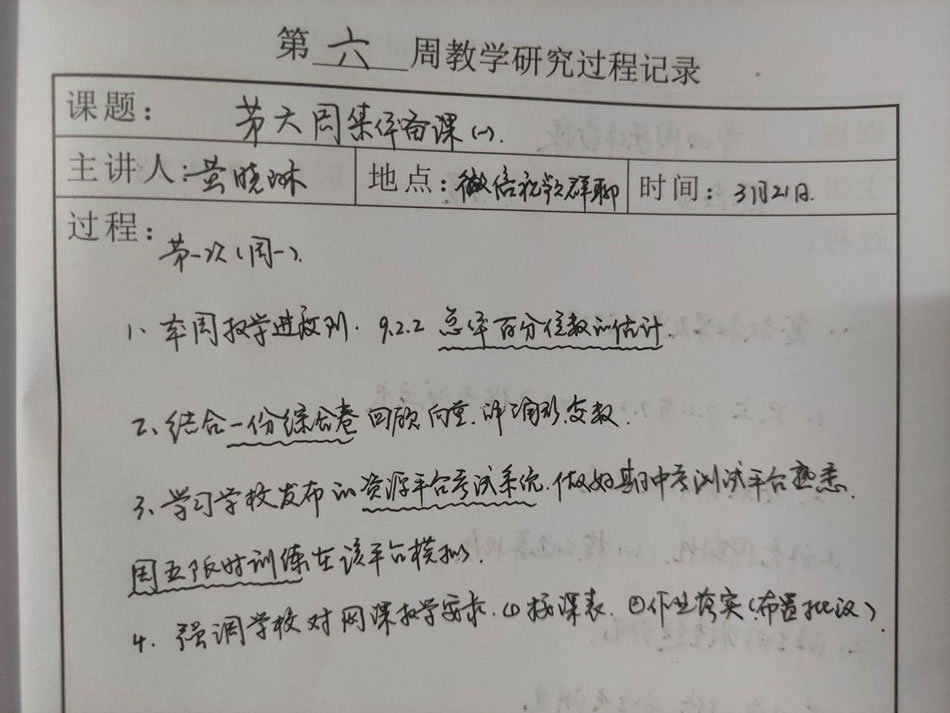 第六周教学研究过程记录
课题: 第六周集体备课(一).
主讲人: 黄晓琳 地点: 微信视频群聊 时间: 3月21日.
过程:
第一次(周一).
1、本周教学进度到. 9.2.2 总体百分位数的估计.
2、结合一份综合卷 回顾 向量. 解三角形. 复数.
3、学习学校发布的资源平台考试系统. 做好期中考测试平台熟悉.
周五限时训练在该平台模拟.
4. 强调学校对网课教学要求. ①按课表. ②作业落实(布置批改)